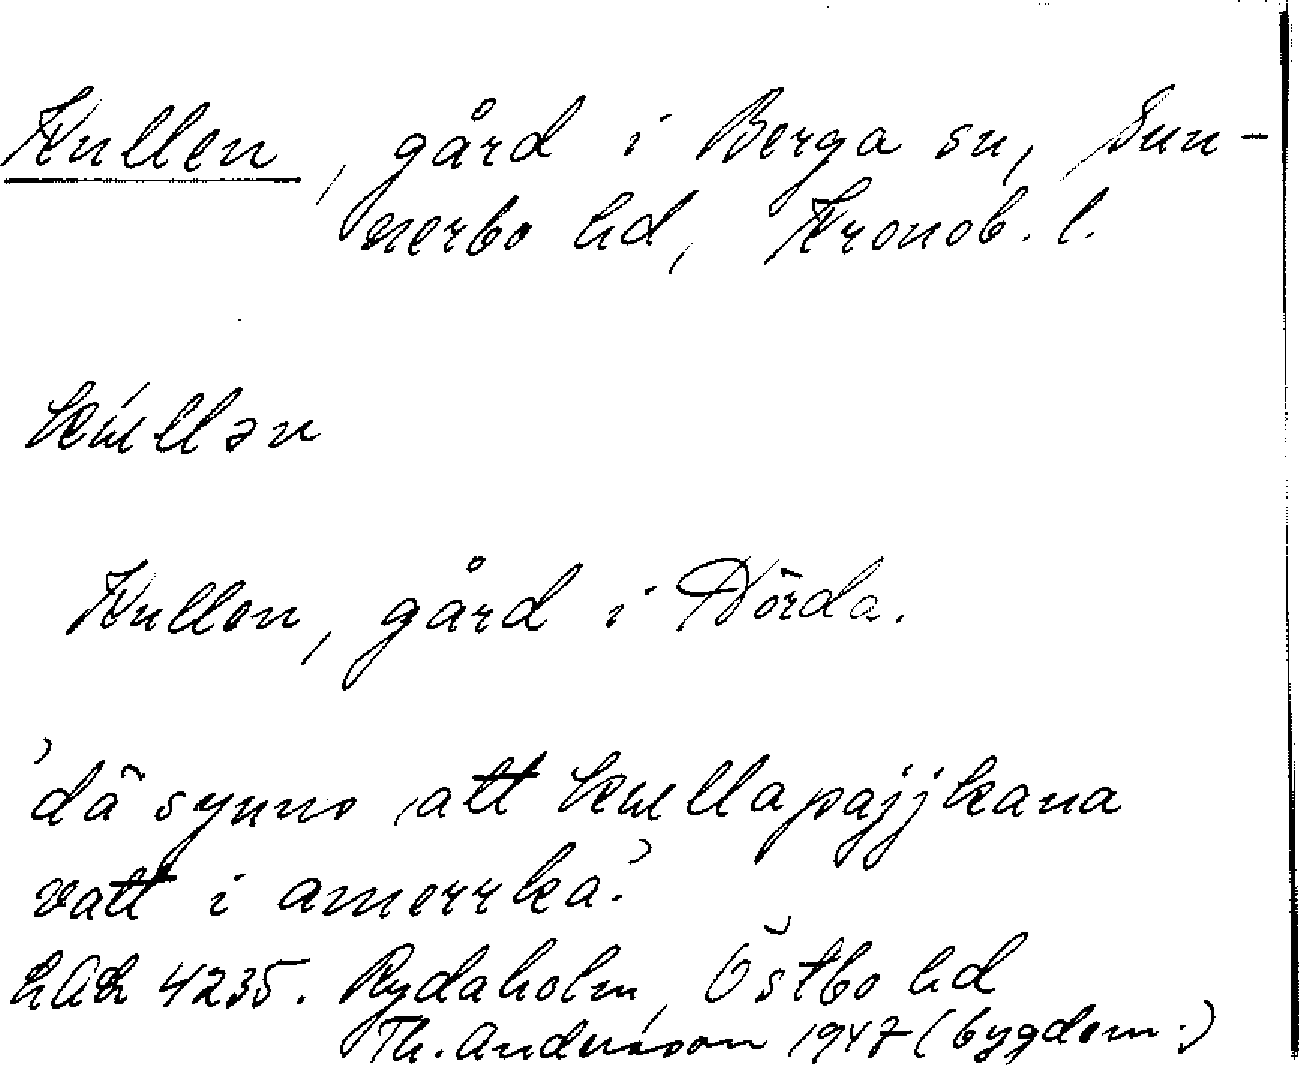 Kullen, gård i Berga sn, Sun-
nerbo hd, Kronob. l.
kullən
Kullen, gård i Dörda.
'dä synns att kullapajjkana
vatt i amerrka.'
LAL 4235. Rydaholm, Östbo hd
Th. Andersson 1947 (bygdem.)